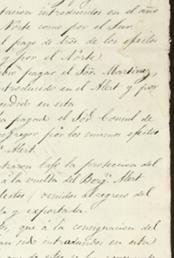 tacion introducidos en el año
Norte como por el Sur.
el pago de dros de los efectos
y por el Norte.
pagar el Sor Martinez
troducido en el Alert y por
en esta
pagará el Sor Consul de
por los mismos efectos
Alert.
bajo la proteccion del
á la vuelta del Bergn Alert
venidos al regreso del
y exportada.
que á la consignacion del
introducidos en esta